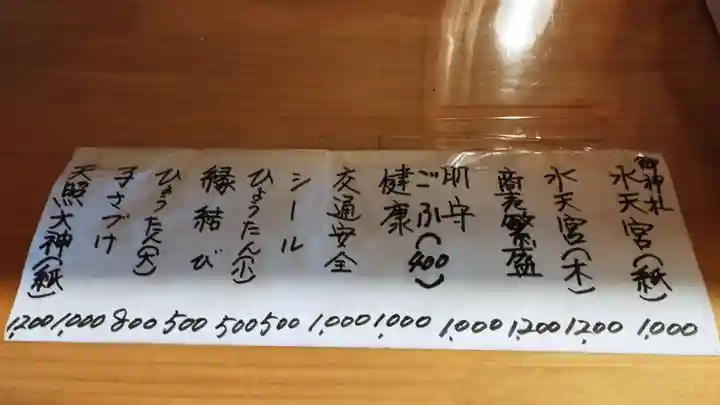 御神札
水天宮(紙) 1,000
水天宮(木) 1,200
商売繁盛 1,200
肌守 1,000
ごふ(400)
健康 1,000
交通安全 1,000
シール 500
ひょうたん(小) 500
縁結び 500
ひょうたん(大) 800
子さづけ 1,000
天照大神(紙) 1,200